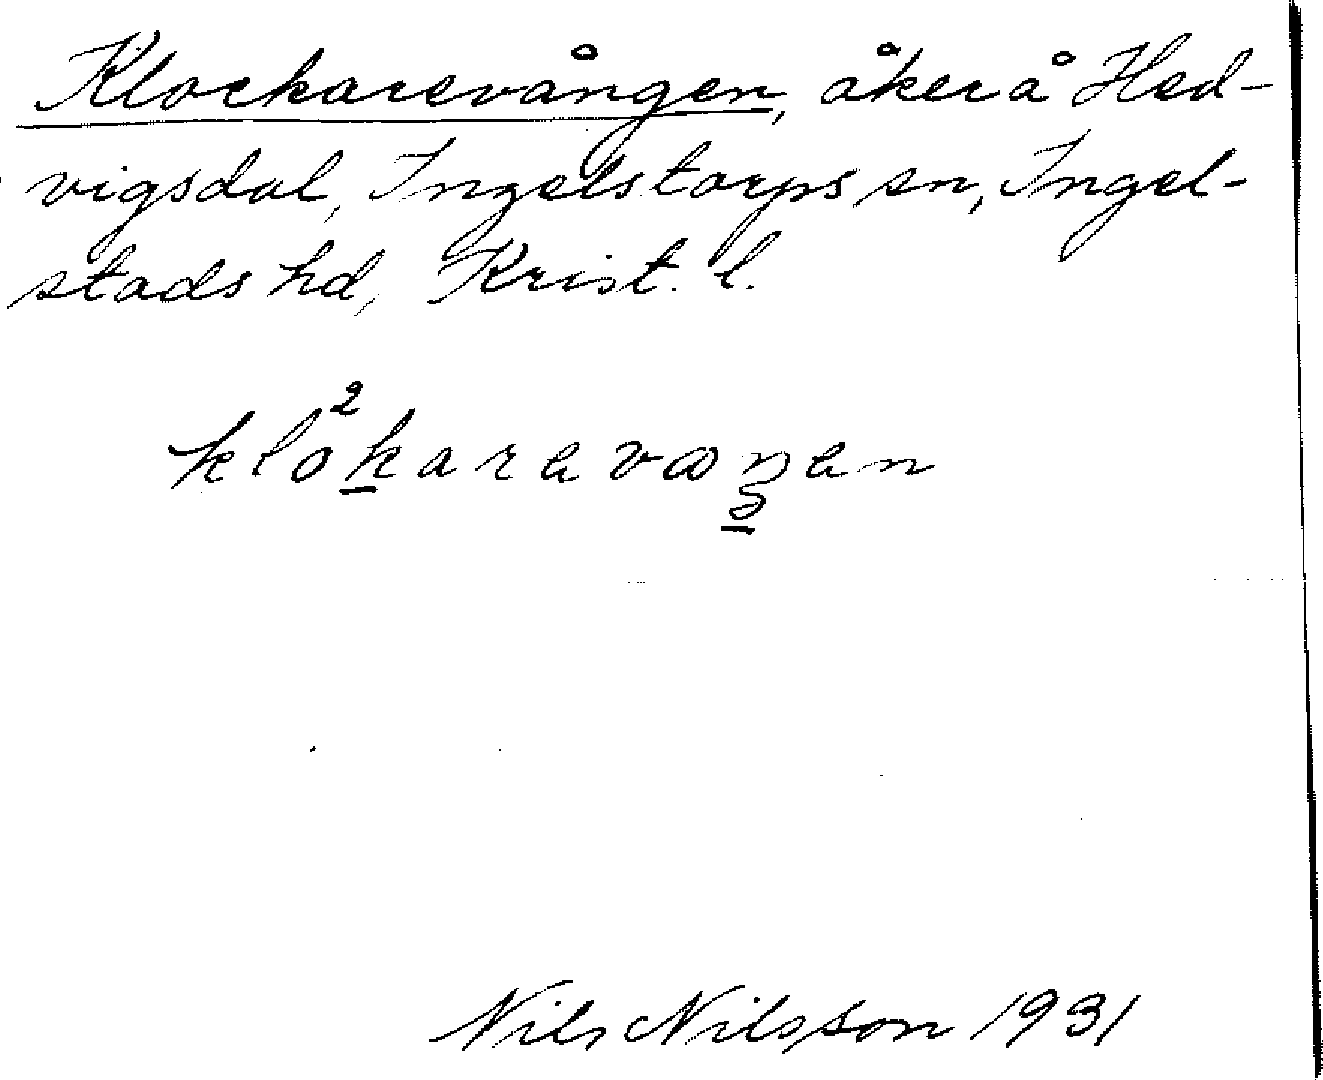 Klockarevången, åker å Hed-
vigsdal, Ingelstorps sn, Ingel-
stads hd, Krist. l.
klo²karavaŋan
Nils Nilsson 1931